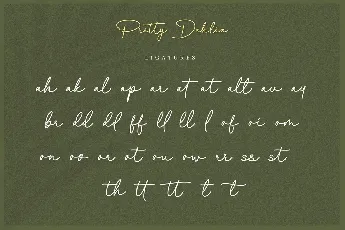 Pretty Dahlia
LIGATURES
ah ak al ap ar at at alt av ay
br dd dl ff ll ll l of oi om
on oo or ot ou ow rr ss st
th tt tt t t